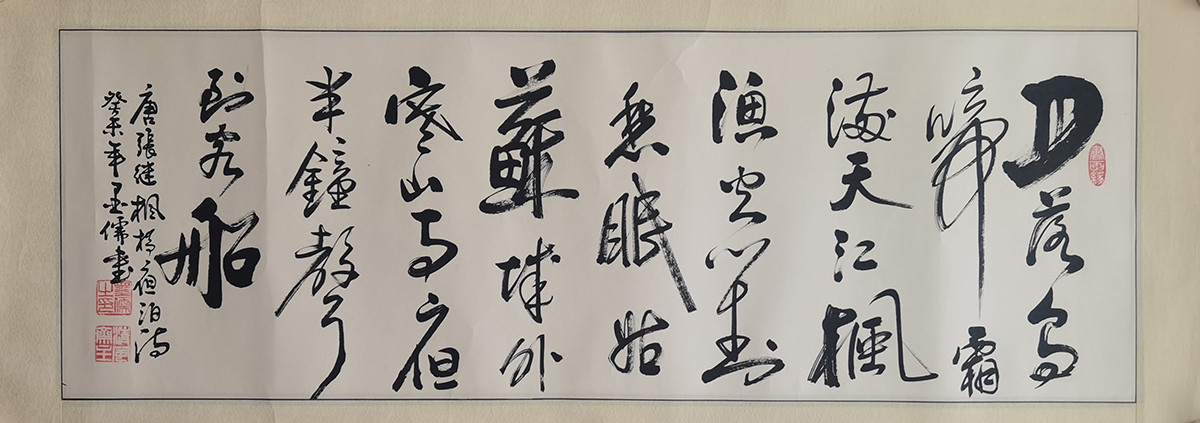 月落烏
啼霜
滿天江楓
漁火對
愁眠姑
蘇城外
寒山寺夜
半鐘聲
到客船
唐張継楓橋夜泊詩
癸未年墨儒書